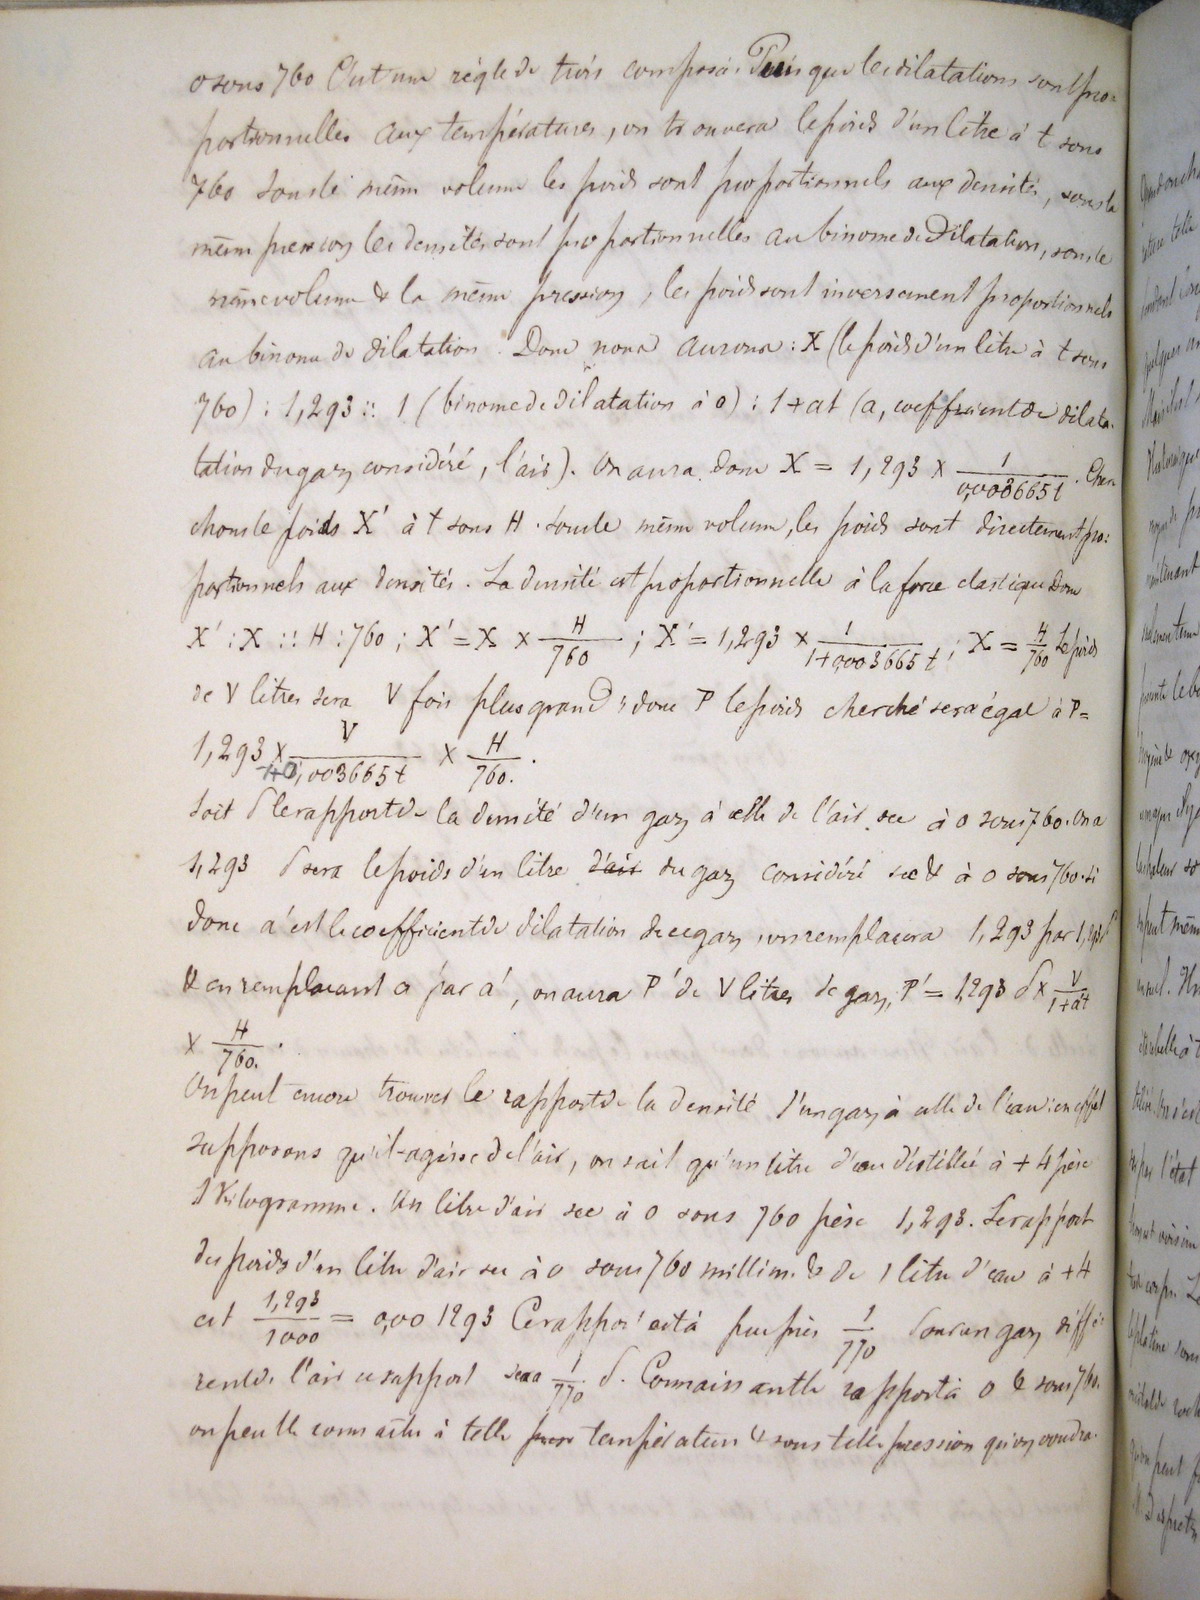 0 sous 760 C'est une règle de trois composée. Puisque les dilatations sont pro-
portionnelles aux températures, on trouvera le poids d'un litre à t sous
760 sous le même volume les poids sont proportionnels aux densités, sous la
même pression les densités sont proportionnelles au binome de Dilatation, sous le
même volume & la même pression, les poids sont inversement proportionnels
au binome de dilatation. Donc nous aurons : X (le poids d'un litre à t sous
760) : 1,293 :: 1 (binome de dilatation à 0) : 1 + at (a, coefficient de dilata-
tation du gaz considéré, l'air). On aura donc X = 1,293 × 1/0,003665t. Cher
chons le poids X' à t sous H. sous le même volume, les poids sont directement pro-
portionnels aux densités. La densité est proportionnelle à la force elastique Donc
X' : X :: H : 760 ; X' = X × H/760 ; X' = 1,293 × 1/1+0,003665t ; X = H/760 Le poids
de V litres sera V fois plus grand ; donc P le poids cherché sera égal à P =
1,293 × V/1+0,003665t × H/760.
Soit δ le rapport de la densité d'un gaz à celle de l'air sec à 0 sous 760. On a
1,293 δ sera le poids d'un litre d'air du gaz considéré sec & à 0 sous 760. si
donc a' est le coefficient de dilatation de ce gaz, on remplacera 1,293 par 1,293δ
& en remplacant a par a', on aura P' de V litres de gaz, P' = 1,293 δ × V/1+a't
× H/760.
On peut encore trouver le rapport de la densité d'un gaz à celle de l'eau : en effet
supposons qu'il s'agisse de l'air, on sait qu'un litre d'eau distillée à +4 pèse
1 Kilogramme. Un litre d'air sec à 0 sous 760 pèse 1,293. Le rapport
des poids d'un litre d'air sec à 0 sous 760 millim. & de 1 litre d'eau à +4
est 1,293/1000 = 0,001293 Ce rapport est à peu près 1/770 Pour un gaz diffé-
rent de l'air ce rapport sera 1/770 δ. Connaissant le rapport à 0 & sous 760.
on peut le connaître à telle température & sous telle pression qu'on voudra.